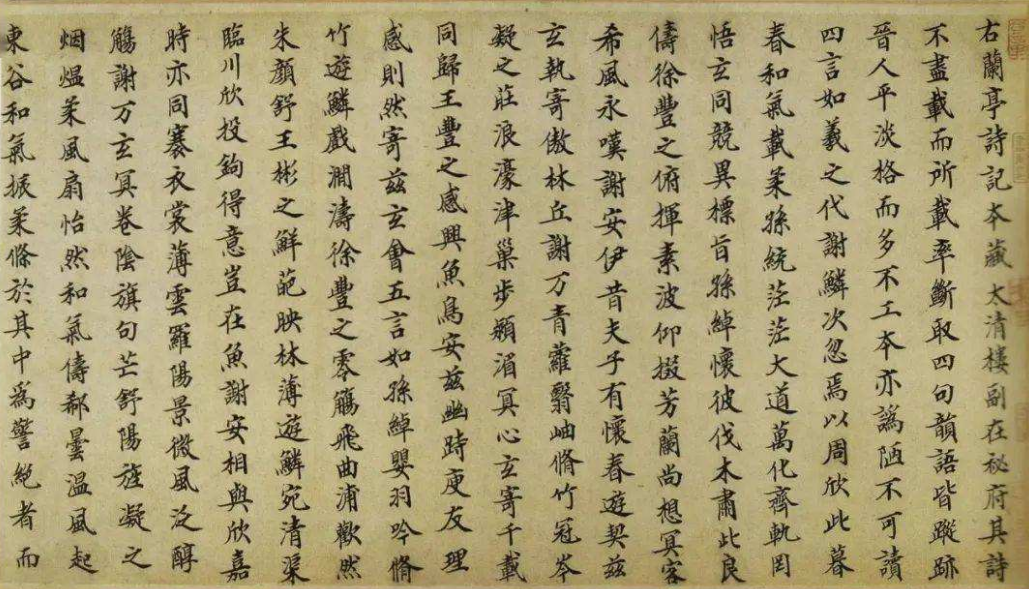 右蘭亭詩記本藏太清樓副在秘府其詩
不盡載而所載率斷取四句韻語皆蹤跡
晉人平淡格而多不工本亦譌陋不可讀
四言如羲之代謝鱗次忽焉以周欣此暮
春和氣載柔孫統茫茫大道萬化齊軌罔
悟玄同競異標旨孫綽懷彼伐木肅此良
儔徐豐之俯揮素波仰掇芳蘭尚想冥客
希風永嘆謝安伊昔夫子有懷春遊契茲
玄執寄傲林丘謝万青蘿翳岫脩竹冠岑
凝之莊浪濠津巢步潁湄冥心玄寄千載
同歸王豐之感興魚鳥安茲幽跱庾友理
感則然寄茲玄會五言如孫綽嬰羽吟脩
竹遊鱗戲澗濤徐豐之零觴飛曲浦歡然
朱顏舒王彬之鮮葩映林薄遊鱗宛清渠
臨川欣投鉤得意豈在魚謝安相與欣嘉
時亦同褰衣裳薄雲羅陽景微風泛醇
觴謝万玄冥卷陰旗句芒舒陽旌凝之
烟熅柔風扇怡然和氣儔郗曇溫風起
東谷和氣振柔條於其中為警絕者而